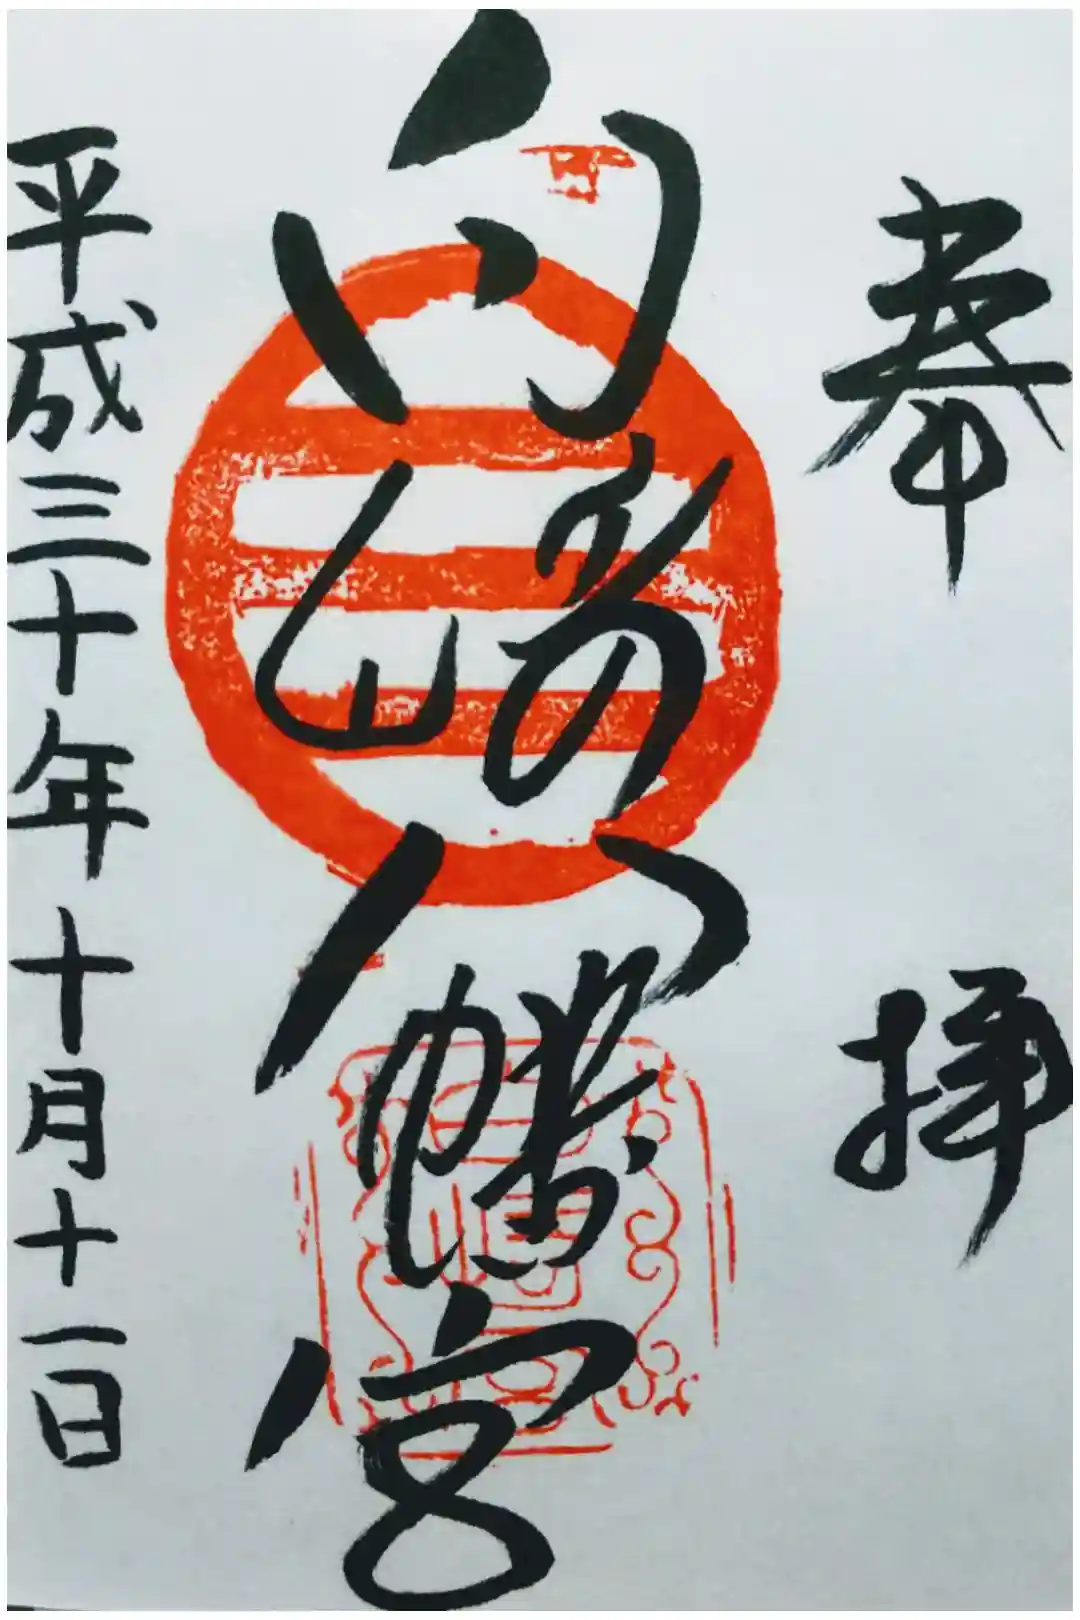 奉拝
白崎八幡宮
平成三十年十月十一日